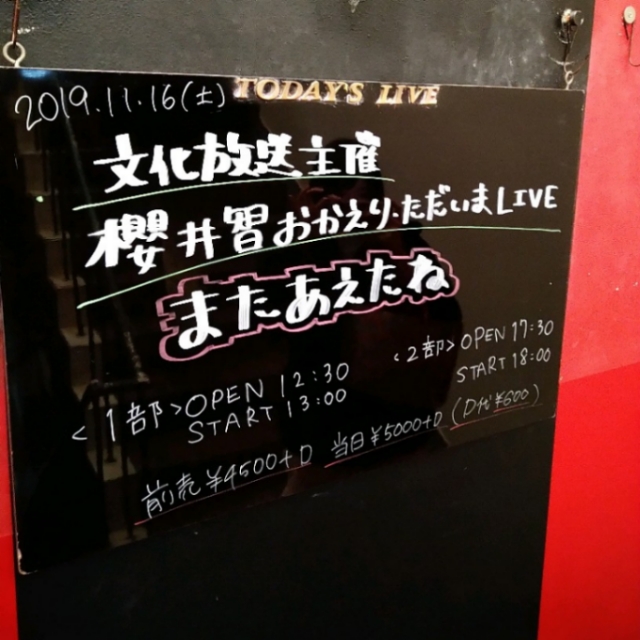 TODAY'S LIVE
2019.11.16(土)
文化放送主催
櫻井智おかえり・ただいまLIVE
またあえたね
<1部>OPEN 12:30
START 13:00
<2部>OPEN 17:30
START 18:00
前売¥4500+D 当日¥5000+D (D代¥600)